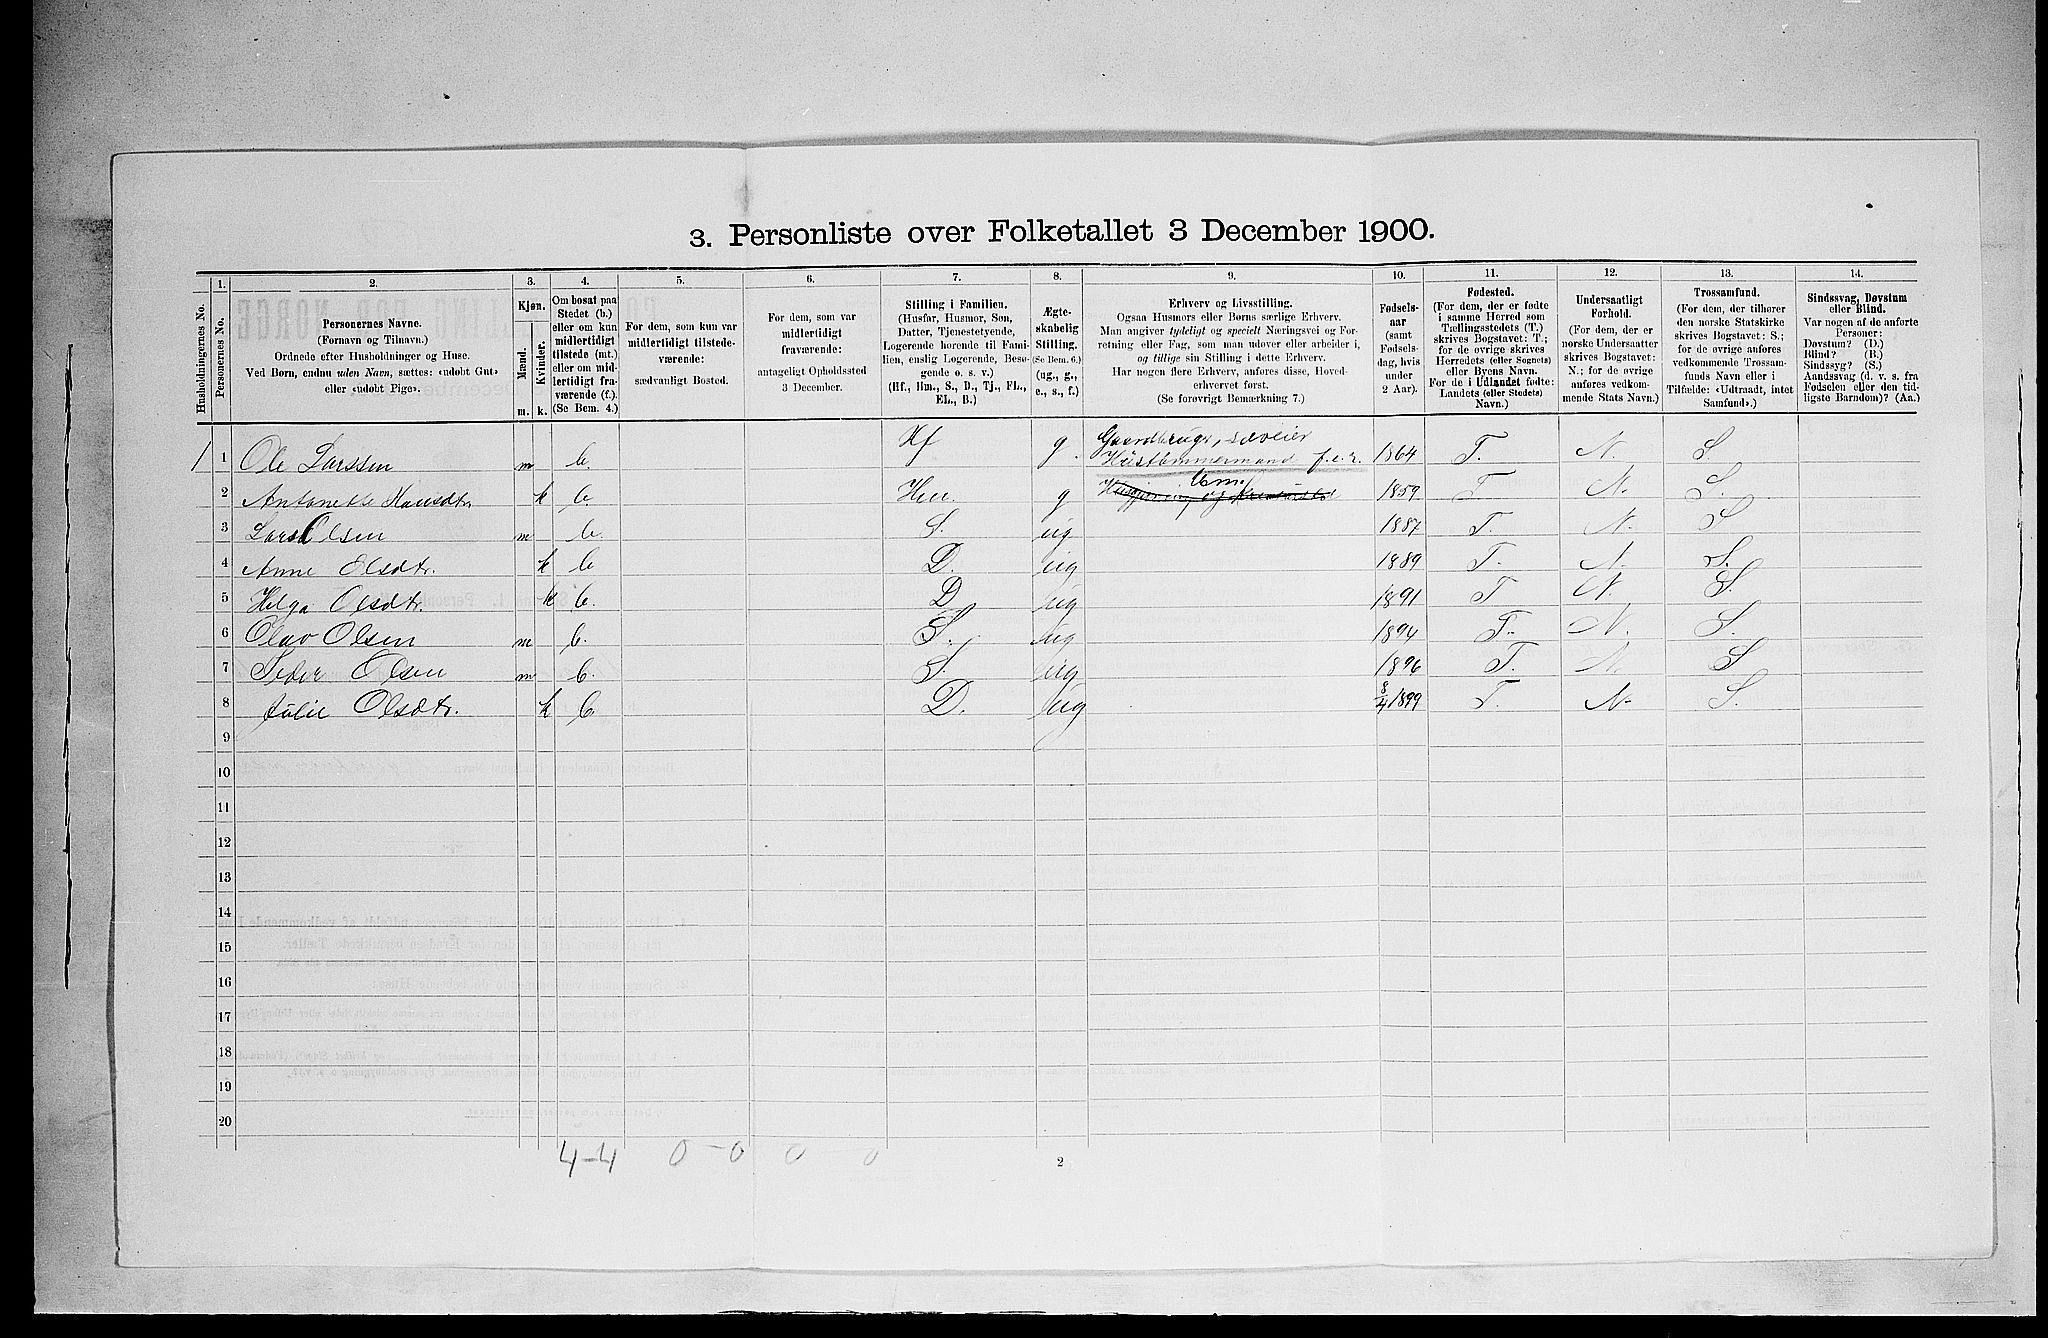 3. Personliste over Folketallet 3 December 1900.
Husholdningernes No.
1.
Personernes No.
2.
Personernes Navne.
(Fornavn og Tilnavn.)
Ordnede efter Husholdninger og Huse.
Ved Børn, endnu uden Navn, sættes: «udobt Gut»
eller «udobt Pige».
3.
Kjøn.
Mænd.
Kvinder.
m. k.
4.
Om bosat paa
Stedet (b.)
eller om kun
midlertidigt
tilstede (mt.)
eller om mid-
lertidigt fra-
værende (f.).
(Se Bem. 4.)
5.
For dem, som kun var
midlertidigt tilstede-
værende:
sædvanligt Bosted.
6.
For dem, som var
midlertidigt
fraværende:
antageligt Opholdssted
3 December.
7.
Stilling i Familien.
(Husfar, Husmor, Søn,
Datter, Tjenestetyende,
Logerende hørende til Fami-
lien, enslig Logerende, Besø-
gende o. s. v.)
(Hf., Hm., S., D., Tj., FL.,
EL., B.)
8.
Ægte-
skabelig
Stilling.
(Se Bem. 6.)
(ug., g.,
e., s., f.)
9.
Erhverv og Livsstilling.
Ogsaa Husmors eller Børns særlige Erhverv.
Man angiver tydeligt og specielt Næringsvei og For-
retning eller Fag, som man udøver eller arbeider i,
og tillige sin Stilling i dette Erhverv.
Har nogen flere Erhverv, anføres disse, Hoved-
erhvervet først.
(Se forøvrigt Bemærkning 7.)
10.
Fødsels-
aar
(samt
Fødsels-
dag, hvis
under
2 Aar).
11.
Fødested.
(For dem, der er fødte
i samme Herred som
Tællingsstedets (T.)
skrives Bogstavet: T.;
for de øvrige skrives
Herredets (eller Sognets)
eller Byens Navn.
For de i Udlandet fødte:
Landets (eller Stedets)
Navn.)
12.
Undersaatligt
Forhold.
(For dem, der er
norske Undersaatter
skrives Bogstavet:
N.; for de øvrige
anføres vedkom-
mende Stats Navn.)
13.
Trossamfund.
(For dem, der tilhører
den norske Statskirke
skrives Bogstavet: S.;
for de øvrige anføres
vedkommende Trossam-
funds Navn eller i
Tilfælde: «Udtraadt, intet
Samfund».)
14.
Sindssvag, Døvstum
eller Blind.
Var nogen af de anførte
Personer:
Døvstum? (D.)
Blind? (B.)
Sindssyg? (S.)
Aandssvag (d. v. s. fra
Fødselen eller den tid-
ligste Barndom)? (Aa.)
1 1 Ole Larssen m b. Hf g. Gaardbruger, sæleier Hustømmermand f.e.r. 1864 T. N. S.
2 Antonette Hansdtr k b. Hm. g 1859 T. N. S.
3 Lars Olsen m b. S. ug 1887 T. N. S
4 Anne Olsdtr. k b D. ug 1889 T. N. S.
5 Helga Olsdtr. k b. D ug 1891 T N. S.
6 Olav Olsen m b. S. ug 1894 T. N. S.
7 Peder Olsen m b. S. ug 1896 T. N. S
8 Julie Olsdtr. k b D. ug 8/4 1899 T. N. S.
9
10
11
12
13
14
15
16
17
18
19
20
4-4 0-0 0 0
2